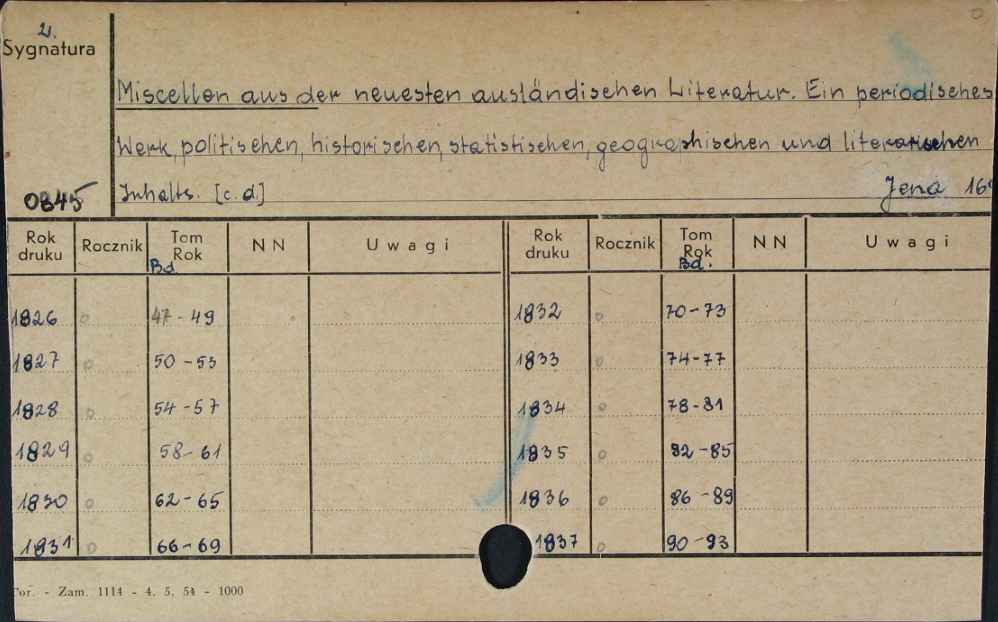 2.
Sygnatura
Miscellen aus der neuesten ausländischen Literatur. Ein periodisches
Werk, politischen, historischen, statistischen, geographischen und literarischen
0845 Inhalts. [c.d.] Jena
Rok druku Rocznik Tom Rok Bd. NN Uwagi Rok druku Rocznik Tom Rok Bd. NN Uwagi
1826 o 47-49 1832 o 70-73
1827 o 50-53 1833 o 74-77
1828 o 54-57 1834 o 78-81
1829 o 58-61 1835 o 82-85
1830 o 62-65 1836 o 86-89
1831 o 66-69 1837 o 90-93
Tor. - Zam. 1114 - 4. 5. 54 - 1000